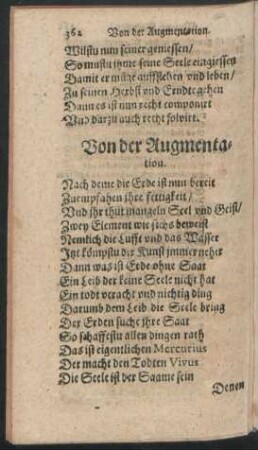 362 Von der Augmentation.
Wilstu nun seiner geniessen/
So mustu ihme seine Seele eingiessen
Damit er müge aufferstehen vnd leben/
Zu seinen Herbst vnd Erndte gehen
Dann es ist nun recht componirt
Vnd darzu auch recht solvirt.
Von der Augmenta-
tion.
Nach deme die Erde ist nun bereit
Zuempfahen ihre fettigkeit/
Vnd ihr thut mangeln Seel vnd Geist/
Zwey Element wie sichs beweist
Nemlich die Lufft vnd das Wasser
Itzt kömpstu der Kunst jmmer neher
Dann was ist Erde ohne Saat
Ein Leib der keine Seele nicht hat
Ein todt veracht vnd nichtig ding
Darumb dem Leib die Seele bring
Der Erden suche ihre Saat
So schaffestu allen dingen rath
Das ist eigentlichen Mercurius
Der macht den Todten Vivus
Die Seele ist der Saame sein
Denen